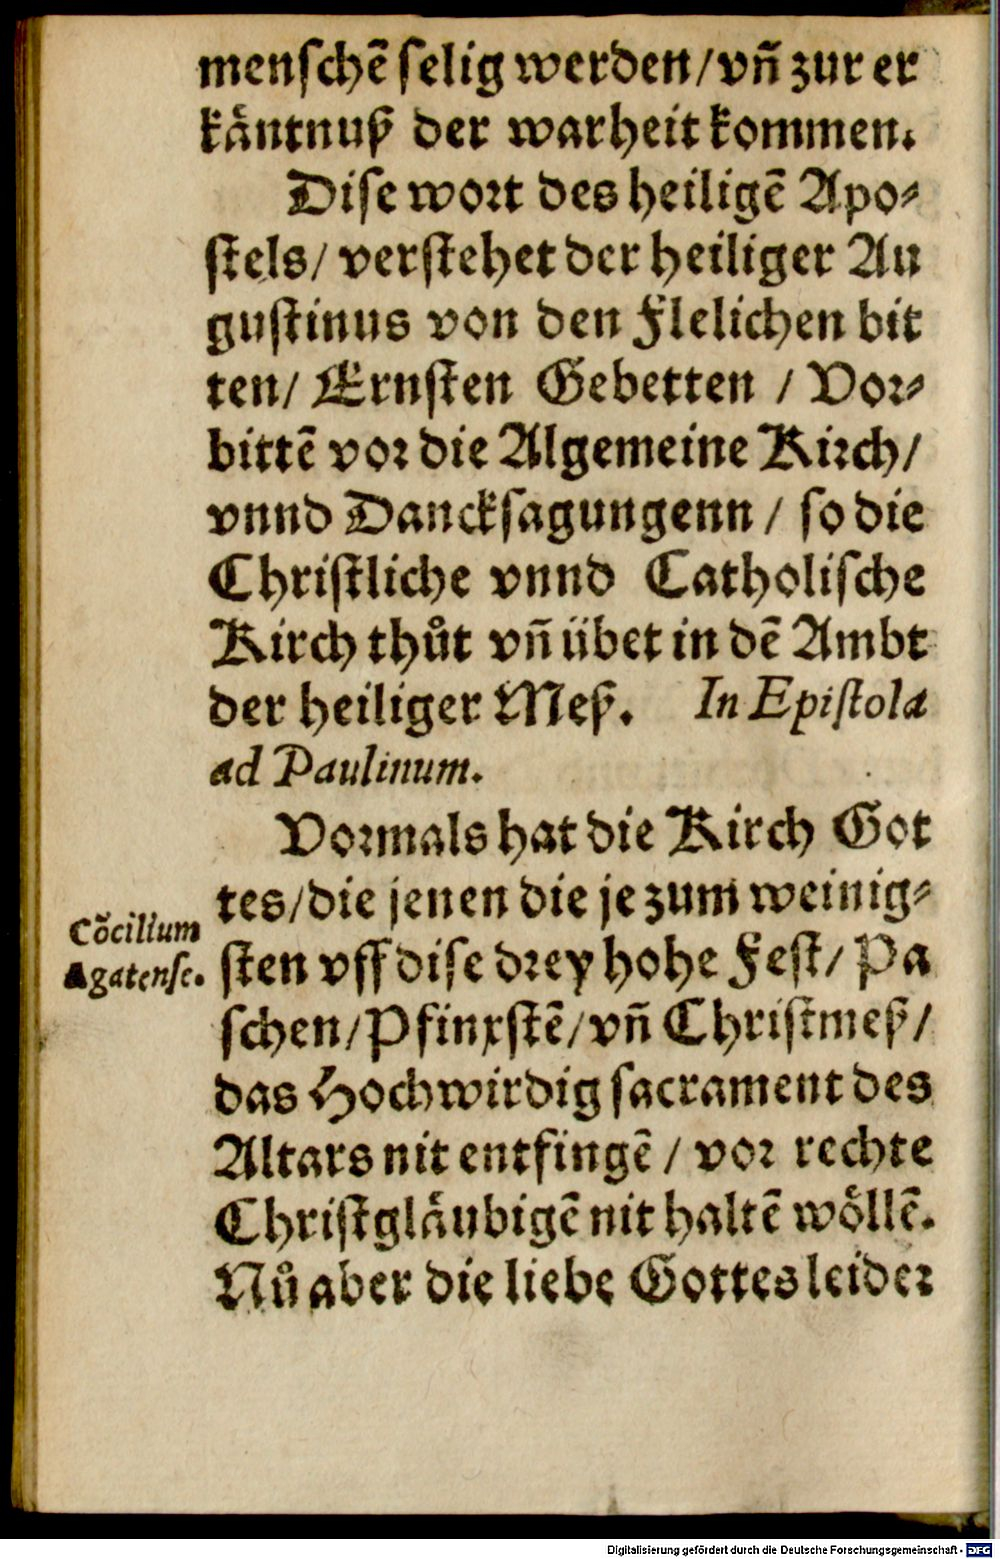 menschẽ selig werden/vñ zur er
käntnuß der warheit kommen.
Dise wort des heiligẽ Apo-
stels/ verstehet der heiliger Au
gustinus von den Flelichen bit
ten/ Ernsten Gebetten / Vor-
bittẽ vor die Algemeine Kirch/
vnnd Dancksagungenn / so die
Christliche vnnd Catholische
Kirch thůt vñ übet in dẽ Ambt
der heiliger Meß. In Epistola
ad Paulinum.
Vormals hat die Kirch Got
tes/die jenen die je zum weinig-
Cõcilium
Agatense.
sten vff dise drey hohe Fest/ Pa
schen/Pfinxstẽ/vñ Christmeß/
das Hochwirdig sacrament des
Altars nit entfingẽ / vor rechte
Christgläubigẽ nit haltẽ wöllẽ.
Nů aber die liebe Gottes leider
Digitalisierung gefördert durch die Deutsche Forschungsgemeinschaft - DFG